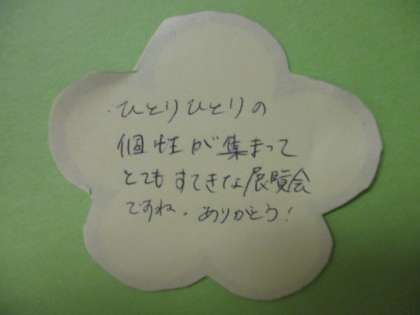 ひとりひとりの
個性が集まって
とてもすてきな展覧会
ですね。ありがとう!